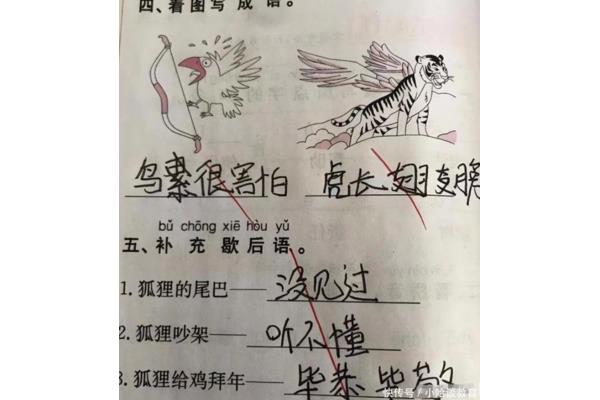 四、看图写成语。
鸟累很害怕 虎长翅膀
bǔ chōng xiē hòu yǔ
五、补充歇后语。
1.狐狸的尾巴——没见过
2.狐狸吵架——听不懂
3.狐狸给鸡拜年——毕恭毕敬
快传号/小哈谈教育